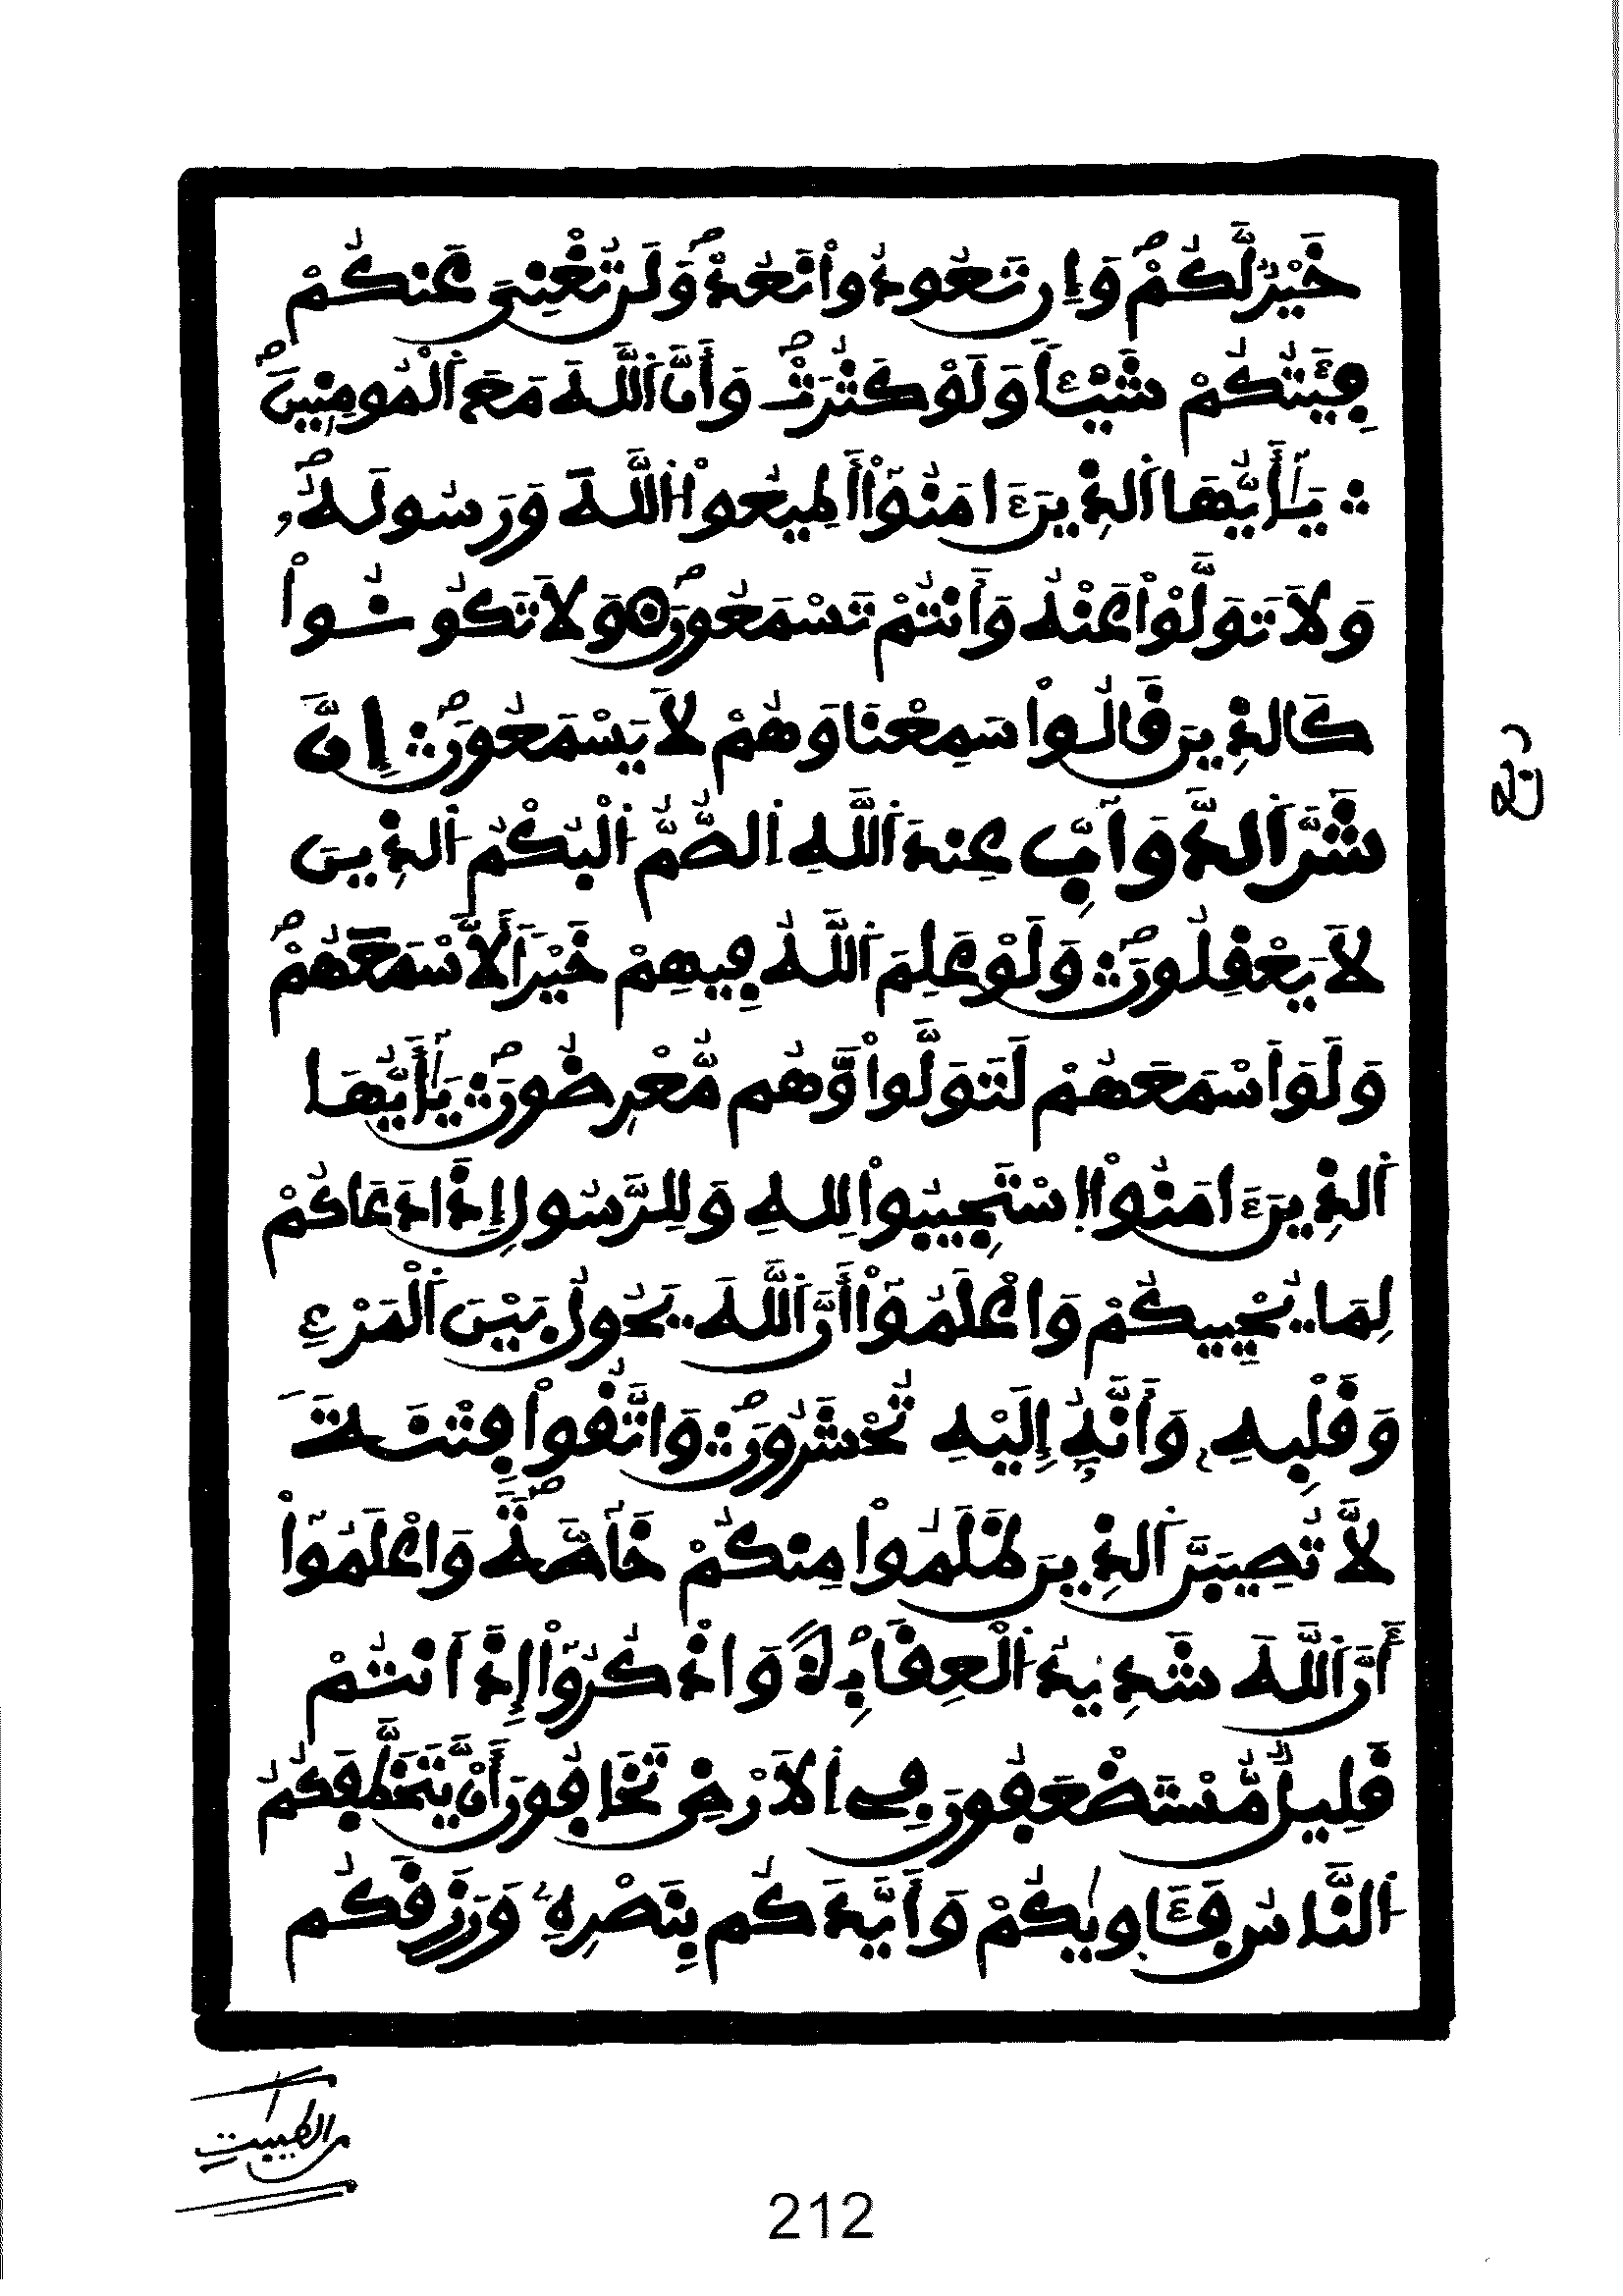 خَيْرٌ لَّكُمْ وَإِن تَعُودُواْ نَعُدْ وَلَن تُغْنِيَ عَنكُمْ
فِئَتُكُمْ شَيْـًٔا وَلَوْ كَثُرَتْ وَأَنَّ اَللَّهَ مَعَ اَلْمُومِنِينَ
يَٰأَيُّهَا اَلذِينَ ءَامَنُواْ أَطِيعُواْ اُللَّهَ وَرَسُولَهُۥ
وَلَا تَوَلَّوْاْ عَنْهُ وَأَنتُمْ تَسْمَعُونَ وَلَا تَكُونُواْ
كَالذِينَ قَالُواْ سَمِعْنَا وَهُمْ لَا يَسْمَعُونَ إِنَّ
شَرَّ اَلدَّوَآبِّ عِندَ اَللَّهِ اِلصُّمُّ اُلْبُكْمُ اُلذِينَ
لَا يَعْقِلُونَ وَلَوْ عَلِمَ اَللَّهُ فِيهِمْ خَيْرًا لَّأَسْمَعَهُمْ
وَلَوَ اَسْمَعَهُمْ لَتَوَلَّواْ وَّهُم مُّعْرِضُونَ يَٰأَيُّهَا
اَلذِينَ ءَامَنُواْ اُسْتَجِيبُواْ لِلهِ وَلِلرَّسُولِ إِذَا دَعَاكُمْ
لِمَا يُحْيِيكُمْ وَاعْلَمُواْ أَنَّ اَللَّهَ يَحُولُ بَيْنَ اَلْمَرْءِ
وَقَلْبِهِۦ وَأَنَّهُۥ إِلَيْهِ تُحْشَرُونَ وَاتَّقُواْ فِتْنَةً
لَّا تُصِيبَنَّ اَلذِينَ ظَلَمُواْ مِنكُمْ خَآصَّةً وَاعْلَمُواْ
أَنَّ اَللَّهَ شَدِيدُ اُلْعِقَابِ وَاذْكُرُواْ إِذَ اَنتُمْ
قَلِيلٌ مُّسْتَضْعَفُونَ فِي اِلَارْضِ تَخَافُونَ أَنْ يَّتَخَطَّفَكُمُ
اُلنَّاسُ فَـَٔاوِيٰكُمْ وَأَيَّدَكُم بِنَصْرِهِۦ وَرَزَقَكُم
ربع
212